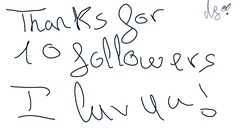 Thanks for
10 followers
I luv ya!